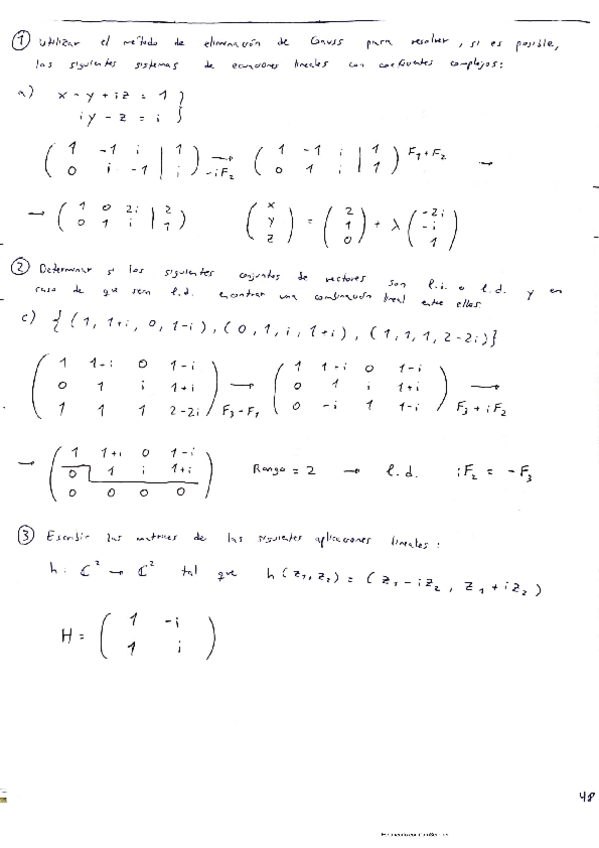 ① Utilizar el método de eliminación de Gauss para resolver, si es posible,
los siguientes sistemas de ecuaciones lineales con coeficientes complejos:
a) x - y + iz = 1 }
iy - z = i }
( 1 -1 i | 1 ) → ( 1 -1 i | 1 ) F1+F2
( 0 i -1 | i ) -iF2 ( 0 1 i | 1 ) →
→ ( 1 0 2i | 2 ) ( x ) = ( 2 ) + λ ( -2i )
( 0 1 i | 1 ) ( y ) ( 1 ) ( -i )
( z ) ( 0 ) ( 1 )
② Determinar si los siguientes conjuntos de vectores son l.i. o l.d. y en
caso de que sean l.d. encontrar una combinación lineal entre ellos.
c) { (1, 1+i, 0, 1-i), (0, 1, i, 1+i), (1, 1, 1, 2-2i) }
( 1 1-i 0 1-i ) ( 1 1-i 0 1-i )
( 0 1 i 1+i ) → ( 0 1 i 1+i ) →
( 1 1 1 2-2i ) F3-F1 ( 0 -i 1 1-i ) F3+iF2
→ ( 1 1+i 0 1-i )
( 0 1 i 1+i ) Rango = 2 → l.d. iF2 = -F3
( 0 0 0 0 )
③ Escribir las matrices de las siguientes aplicaciones lineales:
h: ℂ² → ℂ² tal que h(z1, z2) = (z1 - iz2, z1 + iz2)
H = ( 1 -i )
( 1 i )
48